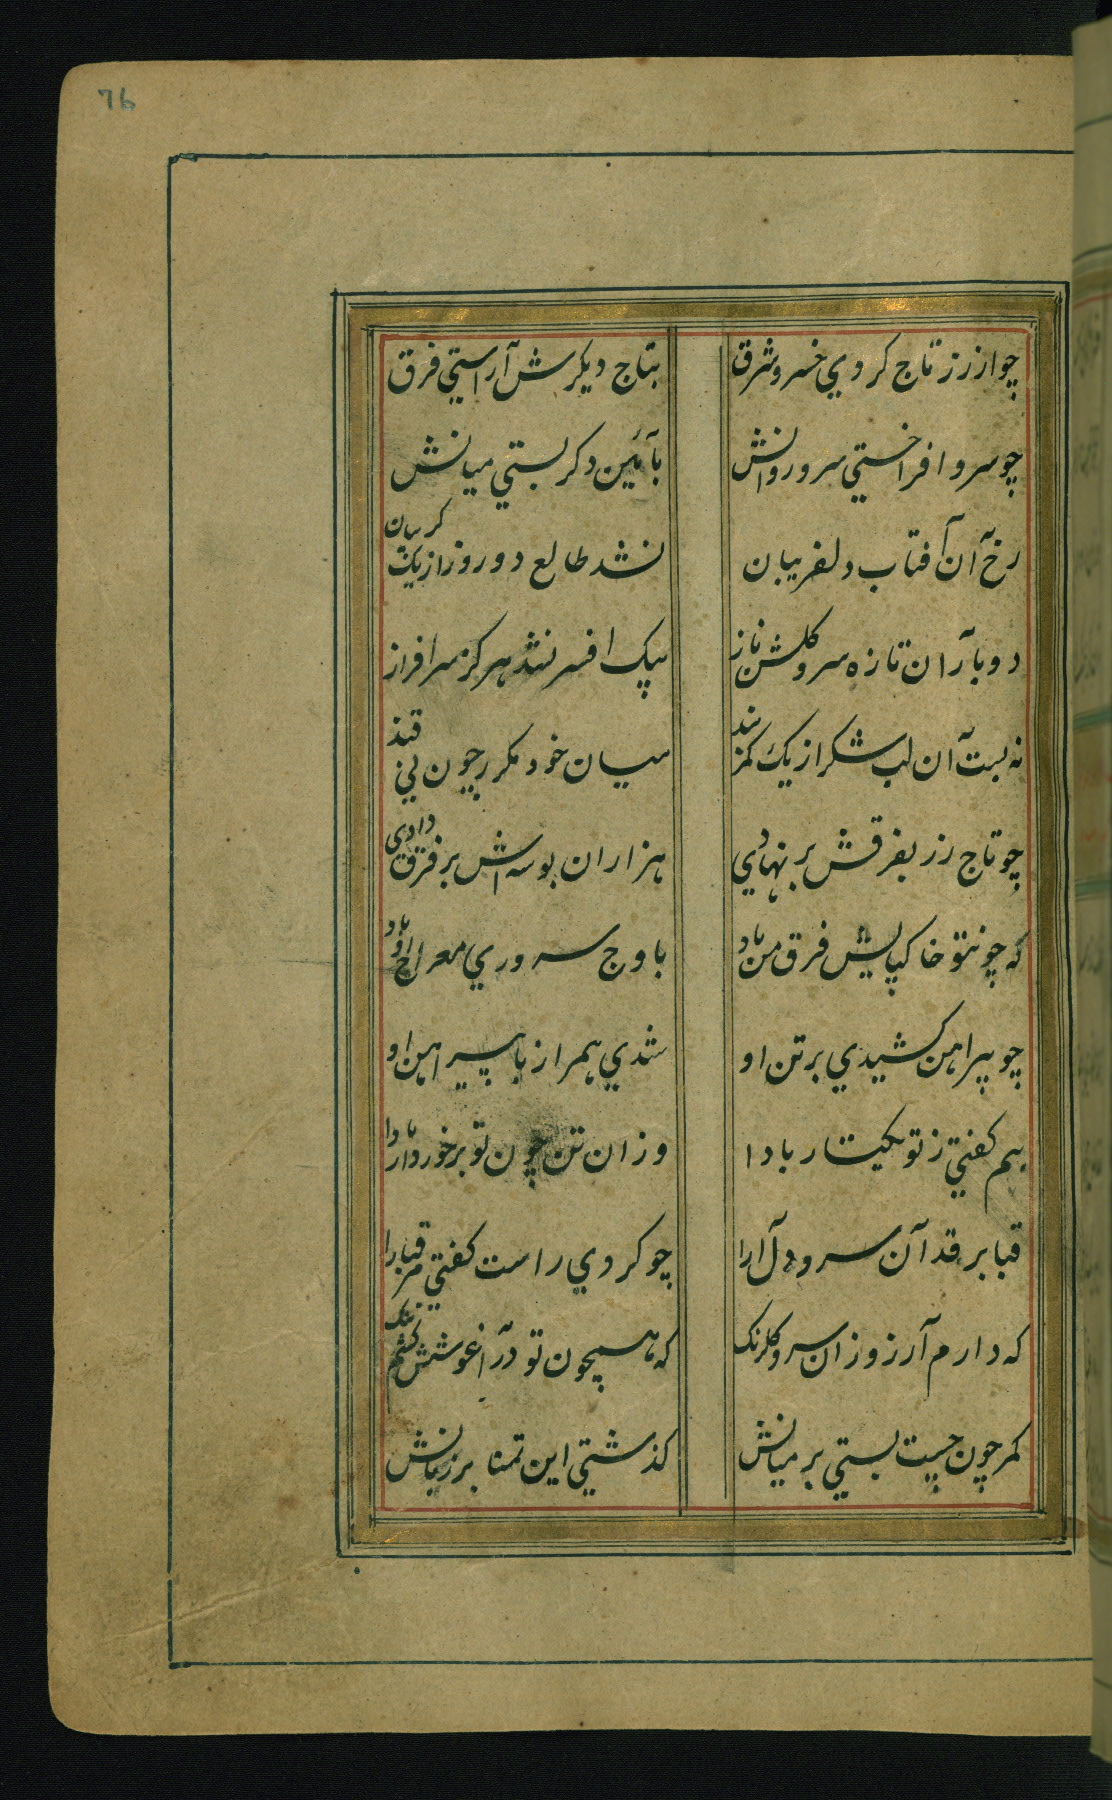 76
چو از زر تاج کردی خسرو شرق
بتاج دیکرش آراستی فرق
چو سرو افراختی سرو روانش
بآئین دکر بستی میانش
رخ آن آفتاب دلفریبان
نشد طالع دو روز از یک کریبان
دو بار آن تازه سرو کلشن ناز
بیک افسر نشد هرکز سرافراز
نه بست آن لب شکر از یک کمر بند
میان خود مکرر چون نی قند
چو تاج زر بفرقش بر نهادی
هزاران بوسه اش بر فرق دادی
که چونتو خاکپایش فرق من باد
باوج سروری معراج او باد
چو پیراهن کشیدی بر تن او
شدی همراز با پیراهن او
بهم کفتی ز تو یکتار بادا
وزان تن چون تو برخوردار بادا
قبا بر قد آن سرو دل آرا
چو کردی راست کفتی مر قبا را
که دارم آرزو زان سرو کلرنک
که همچون تو در آغوشش کشم تنک
کمر چون چست بستی بر میانش
کذشتی این تمنا بر زبانش